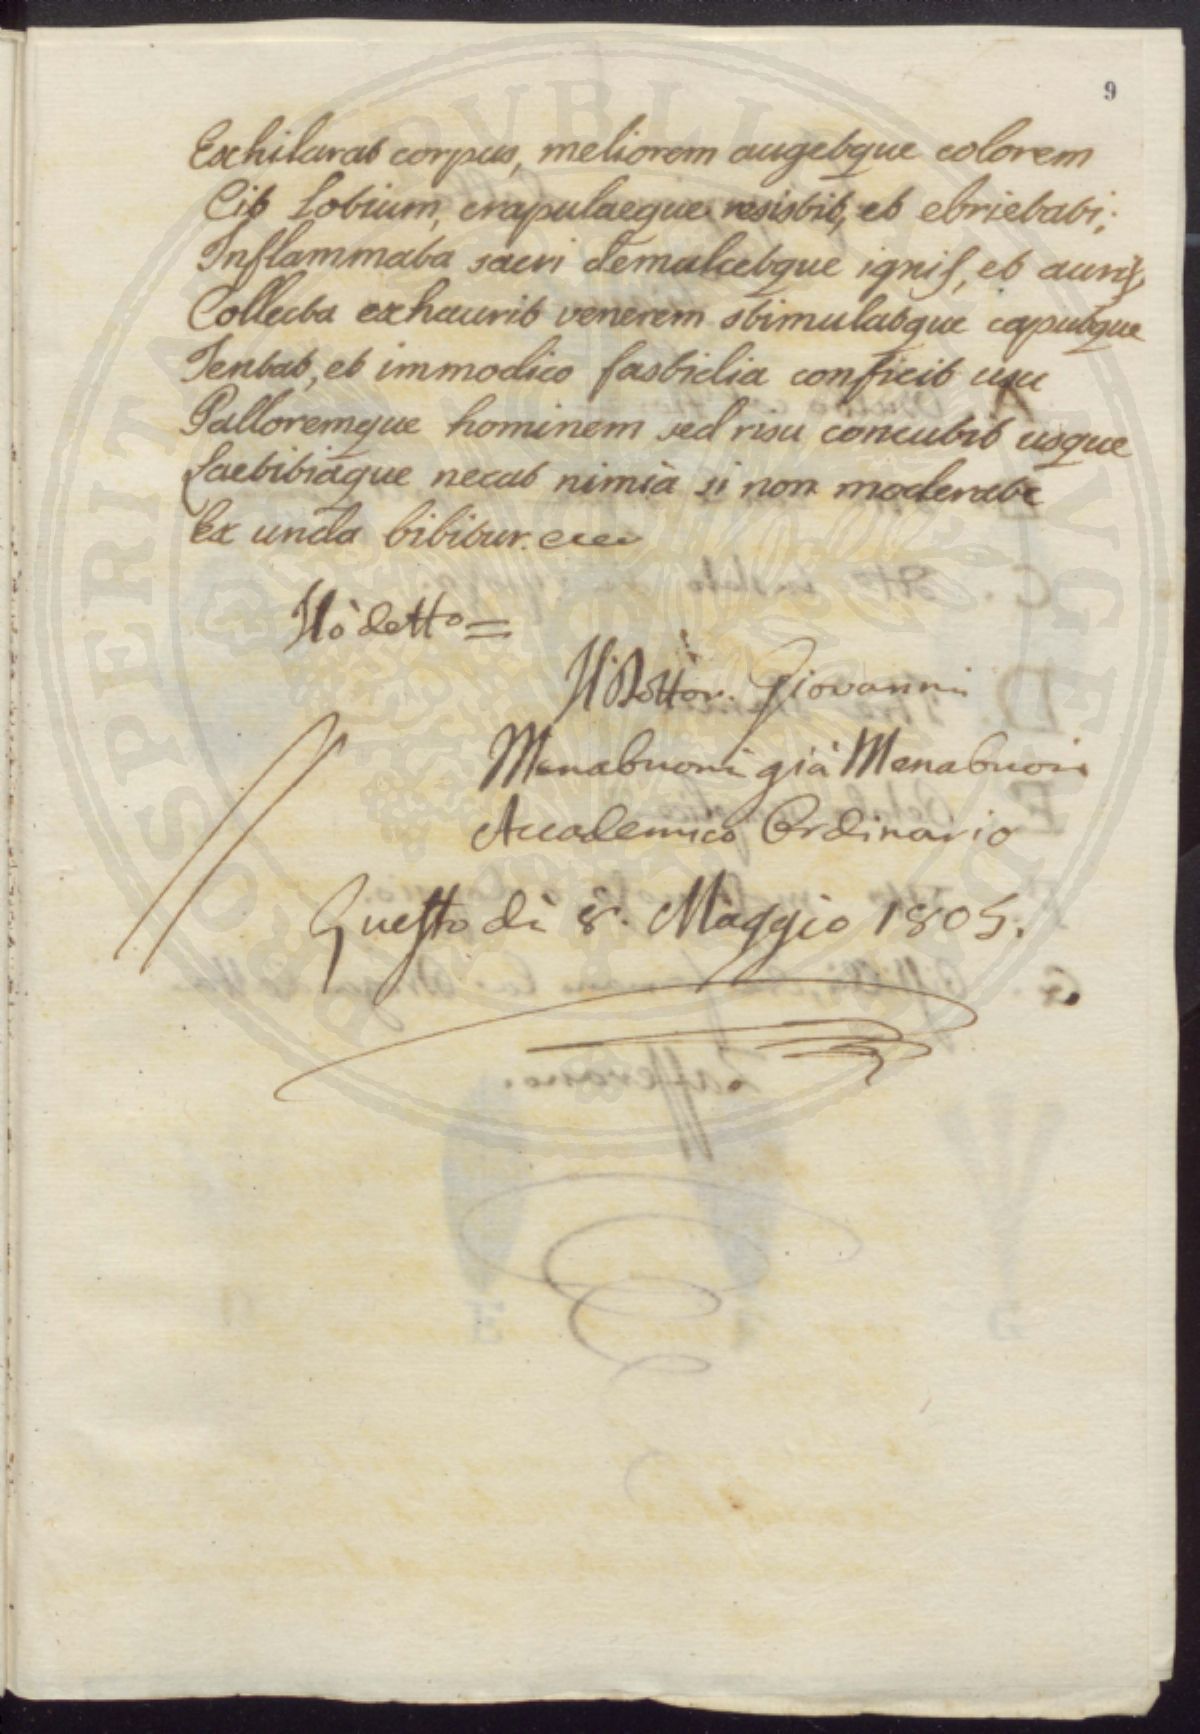 9
Exhilarat corpus, meliorem augetque colorem
Cit Lotium, crapulaeque resistit, et ebrietati;
Inflammata sacri demulcetque ignis, et auris
Collecta exhaurit venerem stimulatque caputque
Tentat, et immodico fastidia conficit usu
Palloremque hominem sed risu concutit usque
Laetitiaque necat nimià si non moderate
Ex unda bibitur.
Hò detto =
Il Dottor. Giovanni
Menabuoni già Menabuoi
Accademico Ordinario
Questo dì 8. Maggio 1805.
PROSPERITATI PUBLICAE AUGENDAE